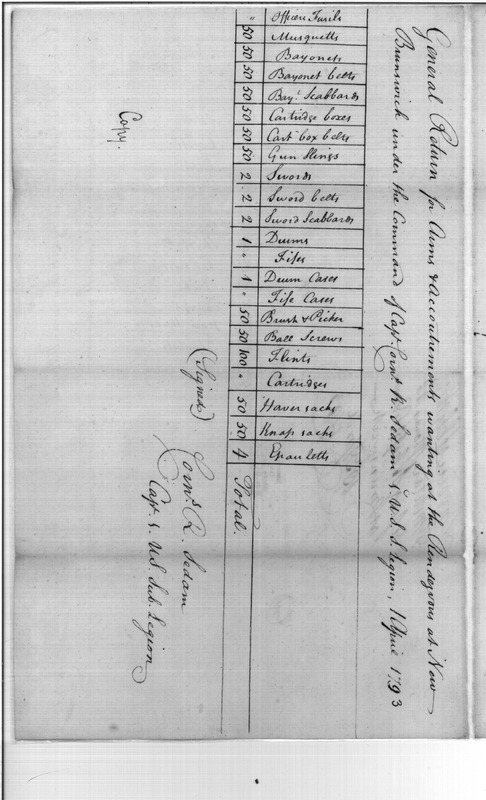 General Return for Arms & Accoutrements wanting at the Rendezvous at New
Brunswick under the Command of Capt. Corns. R. Sedam U.S. Legion, 1 April 1793
Officers Fusils "
Musquetts 50
Bayonets 50
Bayonet belts 50
Bayt. Scabbards 50
Cartridge boxes 50
Cart. box belts 50
Gun Slings 50
Swords 2
Sword belts 2
Sword Scabbards 2
Drums 1
Fifes "
Drum Cases 1
Fife Cases "
Brush & Picker 50
Ball Screws 50
Flints 100
Cartridges "
Haver sacks 50
Knap sacks 50
Epauletts 4
Total.
(Signed)
Corns. R. Sedam
Capt. 1. US. Sub. Legion
Copy.